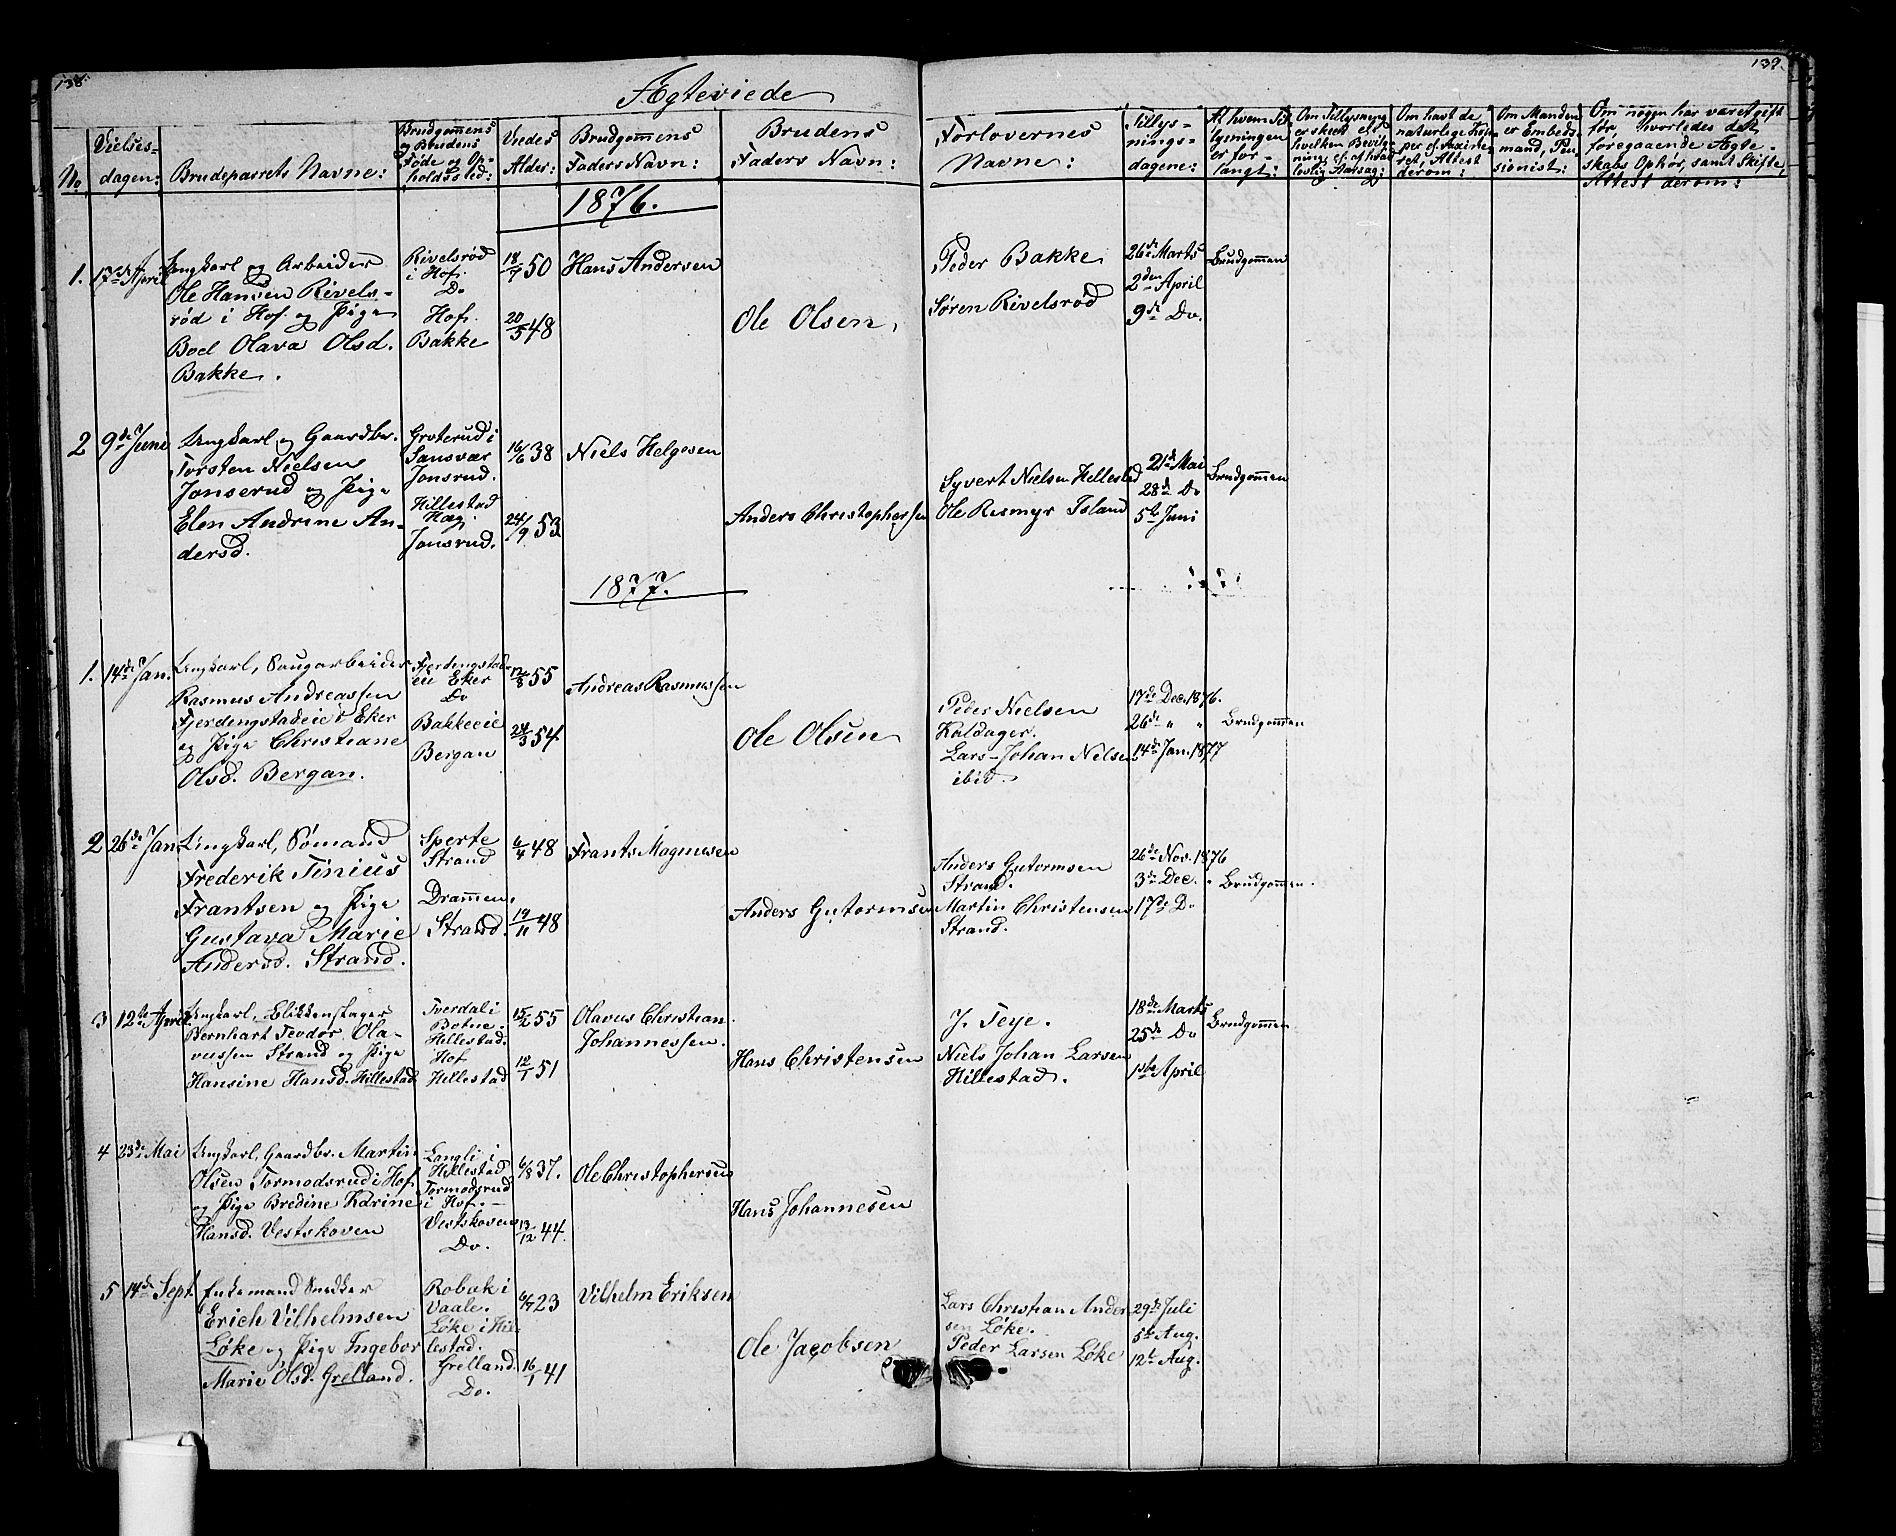 138.
139.
Ægteviede
No
Vielses-
dagen:
Brudeparrets Navne:
Brudgommens
og Brudens
Føde og Op-
holdssted:
Vedes
Alder:
Brudgommens
Faders Navn:
Brudens
Faders Navn:
Forlovernes
Navne:
Tillys-
nings-
dagene:
Af hvem Til-
lysningen
er for-
langt:
Om havt de
naturlige Kop-
per
Attest
derom:
Om Manden
er Embeds-
mand, Pen-
sionist:
Om nogen har været gift
før, hvorledes det
foregaaende Ægte-
skabs Ophør, samt Skifte-
Attest derom:
1876.
1. 17de April
Ungkarl og Arbeider
Ole Hansen Rivels-
rød i Hof og Pige
Boel Olava Olsd.
Bakke.
Rivelsrød
i Hof.
Do
Hof.
Bakke
18/7 50
20/5 48
Hans Andersen
Ole Olsen,
Peder Bakke
Søren Rivelsrød
26de Marts
2den April
9de Do.
Brudgommen
2 9de Juni
Ungkarl og Gaardbr.
Torsten Nielsen
Jonserud og Pige
Elen Andrine An-
dersd.
Groterud i
Sansvær
Jonsrud.
Hillestad
Hag.
Jonsrud.
16/6 38
24/9 53
Niels Helgesen
Anders Christophersen
Syvert Nielsen Hellestad
Ole Resmyr Island
21de Mai
28de Do
5te Juni
Brudgommen
1877.
1. 14de Jan.
Ungkarl, Saugarbeider
Rasmus Andreassen
Fjerdingstadeie i Eker
og Pige Christiane
Olsd. Bergan.
Fjerdingstad-
eie Eker
Do
Bakkeeie
Bergan
12/8 55
24/3 54
Andreas Rasmussen
Ole Olsen
Peder Nielsen
Kaldager.
Lars Johan Nielsen
ibid.
17de Dec. 1876.
26de " "
14de Jan. 1877
Brudgommen
2 26de Jan.
Ungkarl, Sømand
Frederik Tinius
Frantsen og Pige
Gustava Marie
Andersd. Strand.
Sperte
Strand
Drammen.
Strand.
6/4 48
19/11 48
Frants Magnusen
Anders Gutormsen
Anders Gutormsen
Strand.
Martin Christensen
Strand.
26de Nov. 1876
3de Dec. "
17de Do
Brudgommen.
3 12te April
Ungkarl, Blikkenslager
Bernhart Teodor Ola-
vussen Strand og Pige
Hansine Hansd. Hillestad
Tverdal i
Botne.
Hillestad.
Hof
Hillestad
15/2 55
12/1 51
Olavus Christian
Johannessen.
Hans Christensen
J. Teye.
Niels Johan Larsen
Hillestad.
18de Marts
25de Do
1ste April
Brudgommen
4 23de Mai
Ungkarl, Gaardbr. Martin
Olsen Tormodsrud i Hof
og Pige Bredine Karine
Hansd. Vestskoven
Langli i
Hillestad
Tormodsrud
i Hof.
Vestskoven
Do.
6/8 37.
13/12 44.
Ole Christophersen
Hans Johannesen
5 14de Sept.
Enkemand Snedker
Erich Vilhelmsen
Løke og Pige Ingebor
Marie Olsd. Grelland.
Robak i
Vaale.
Løke i Hil-
lestad.
Grelland.
Do.
6/7 23
16/1 41
Vilhelm Eriksen
Ole Jacobsen
Lars Christian Ander-
sen Løke.
Peder Larsen Løke
29de Juli
5te Aug.
12te Aug.